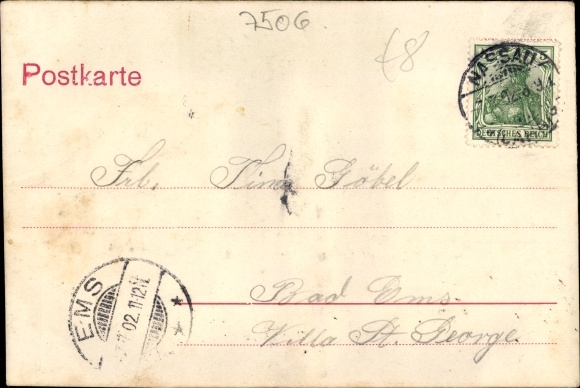 7506
Postkarte
NASSAU
DEUTSCHES REICH
Frl. Tina Göbel
Bad Ems.
Villa St. George.
EMS
02. 11-12V.